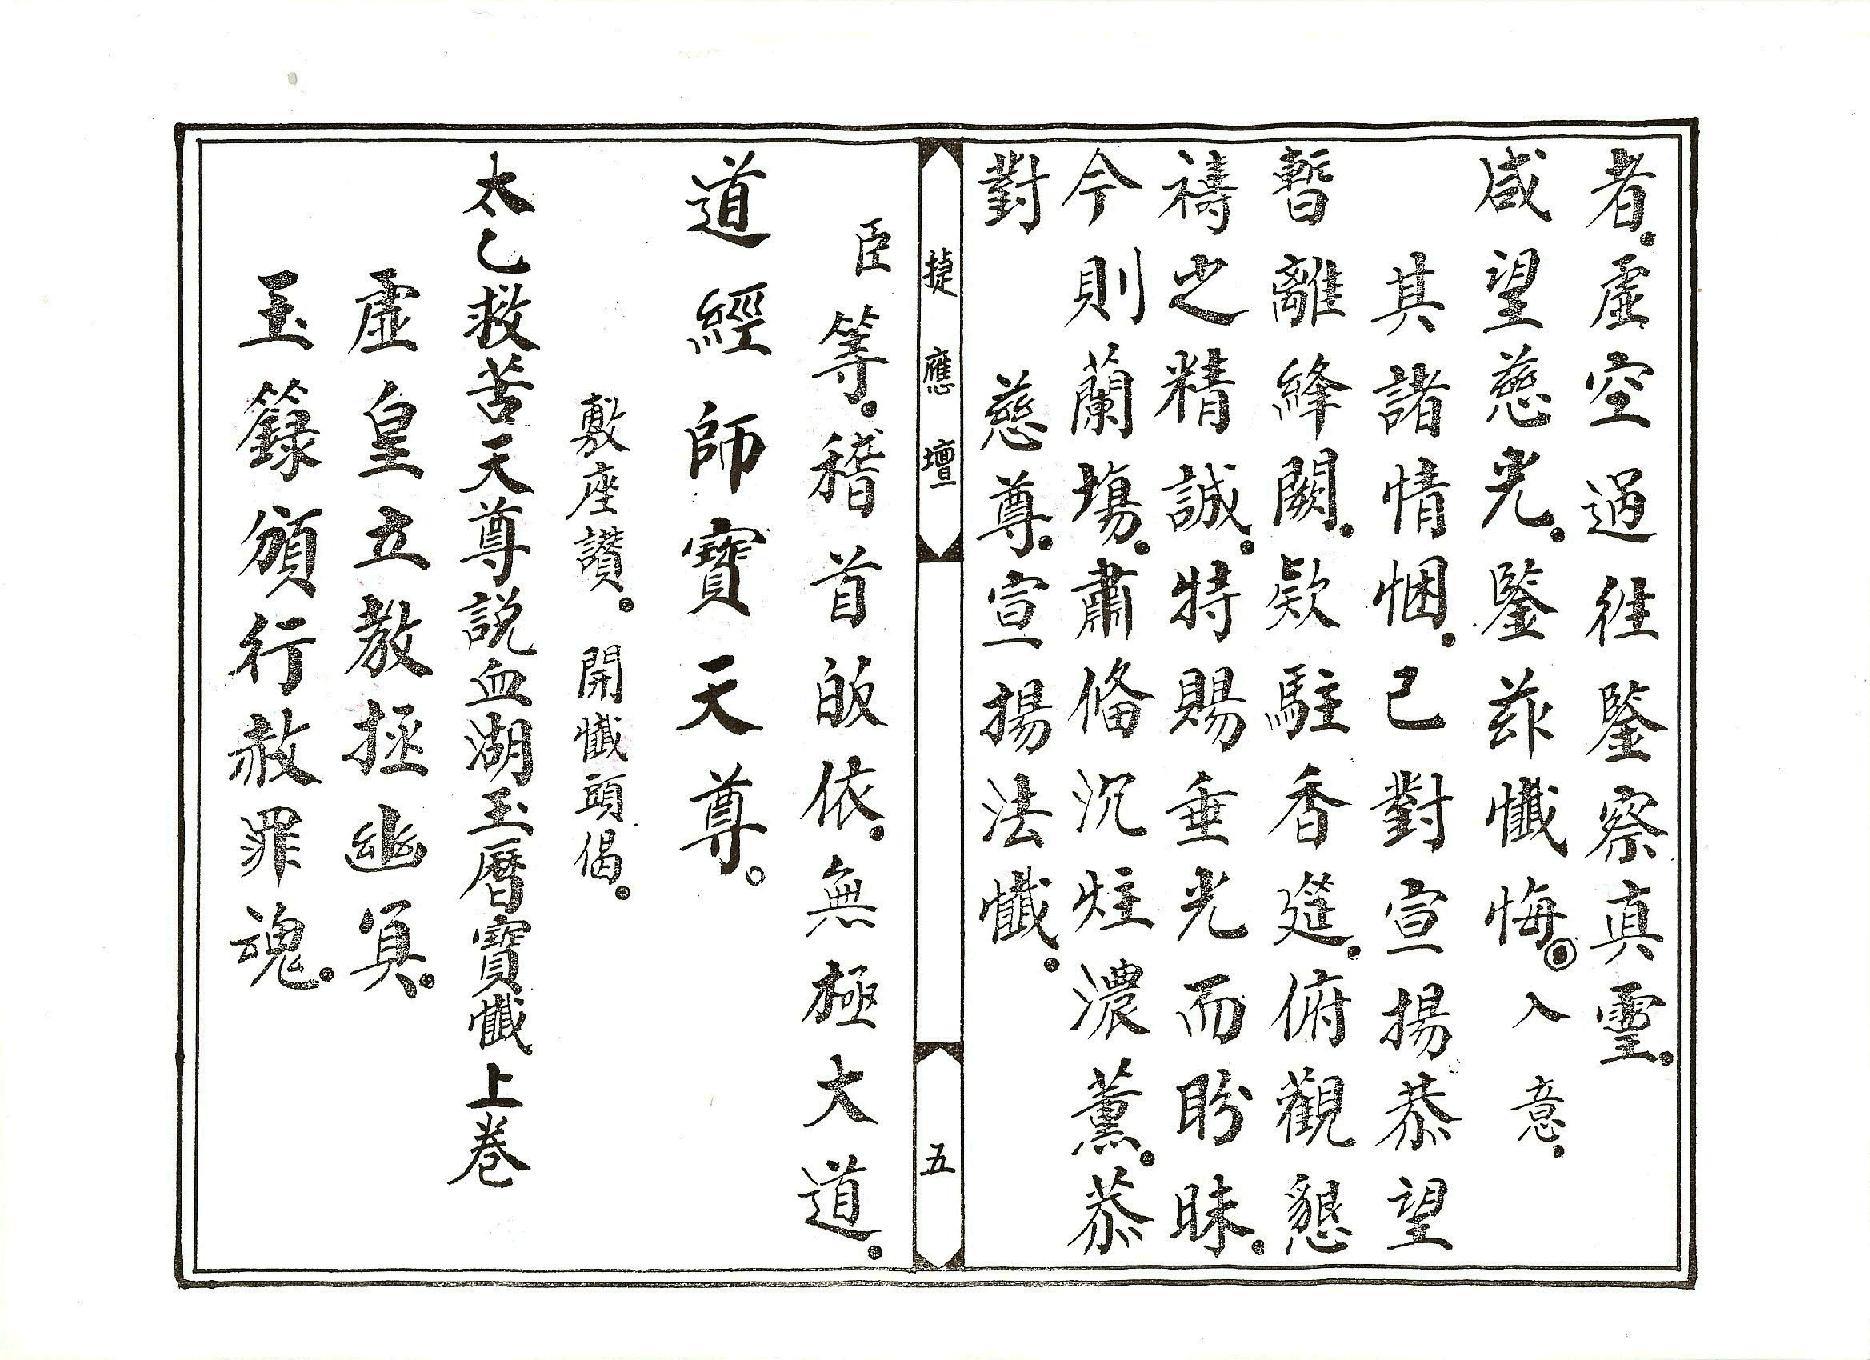 者。虛空過往鑒察真靈。
咸望慈光。鑒茲懺悔。◎入意。
其諸情悃。已對宣揚恭望
暫離絳闕。欵駐香筵。俯觀懇
禱之精誠。特賜垂光而盼昧。
今則蘭塲。肅俻沉炷濃薰。恭
對 慈尊。宣揚法懺。
捷應壇 五
臣等。稽首皈依。無極大道。
道經師寶天尊。
敷座讚。開懺頭偈。
太乙救苦天尊説血湖玉曆寶懺上卷
虛皇立教拯幽冥。
玉籙頒行赦罪魂。